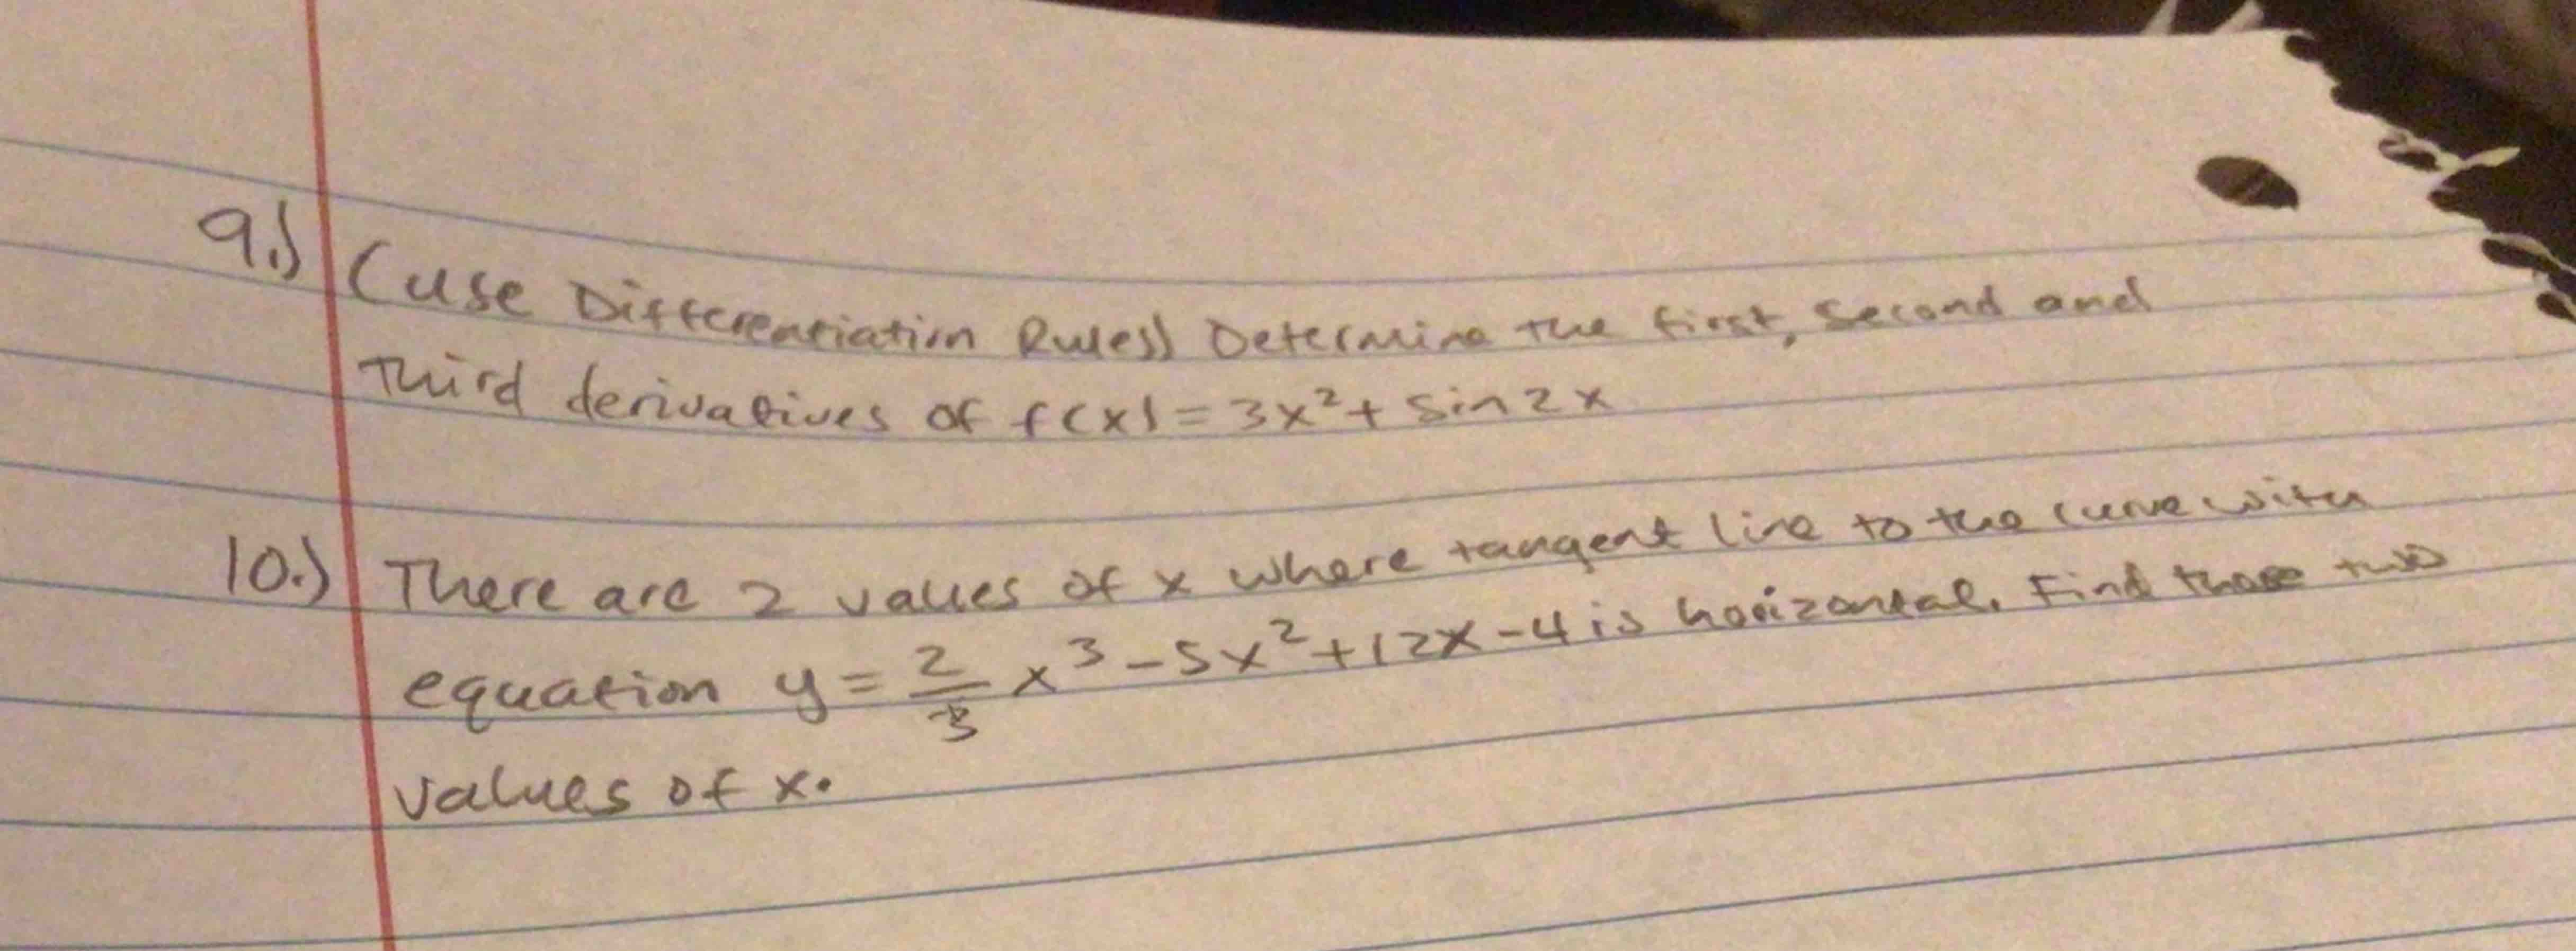 9.) (use Differentiation Rules) Determine the first, second and
Third derivatives of f(x) = 3x² + sin 2x
10.) There are 2 values of x where tangent line to the curve with
equation y = 2/3 x³ - 5x² + 12x - 4 is horizontal. Find those two
values of x.